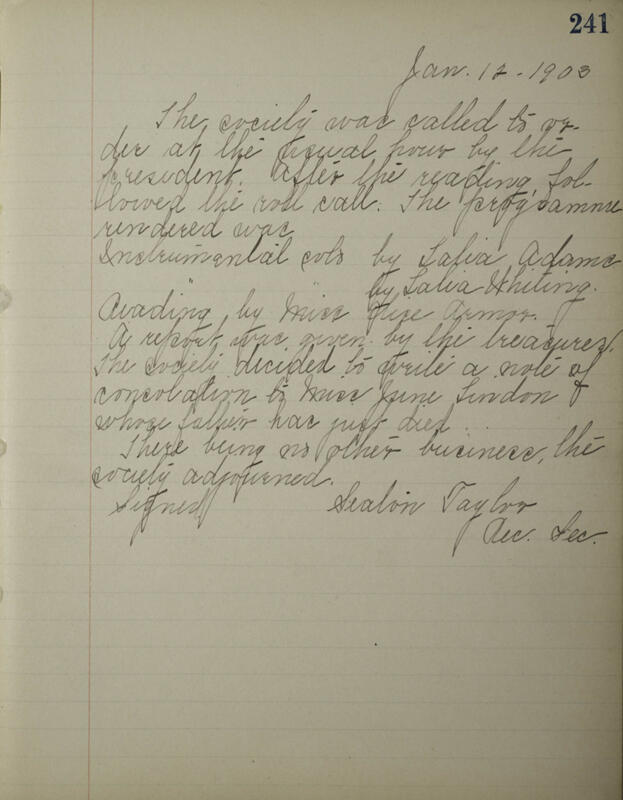 241
Jan. 12 - 1903
The society was called to or-
der at the usual hour by the
president. After the reading, fol-
lowed the roll call. The programme
rendered was
Instrumental solo by Salia Adams
" by Salia Whiting.
Reading by Miss Armor.
A report was given by the treasurer.
The society decided to write a note of
consolation to Miss June Lindon
whose father has just died.
There being no other business, the
society adjourned.
Signed Taylor
Rec. Sec.